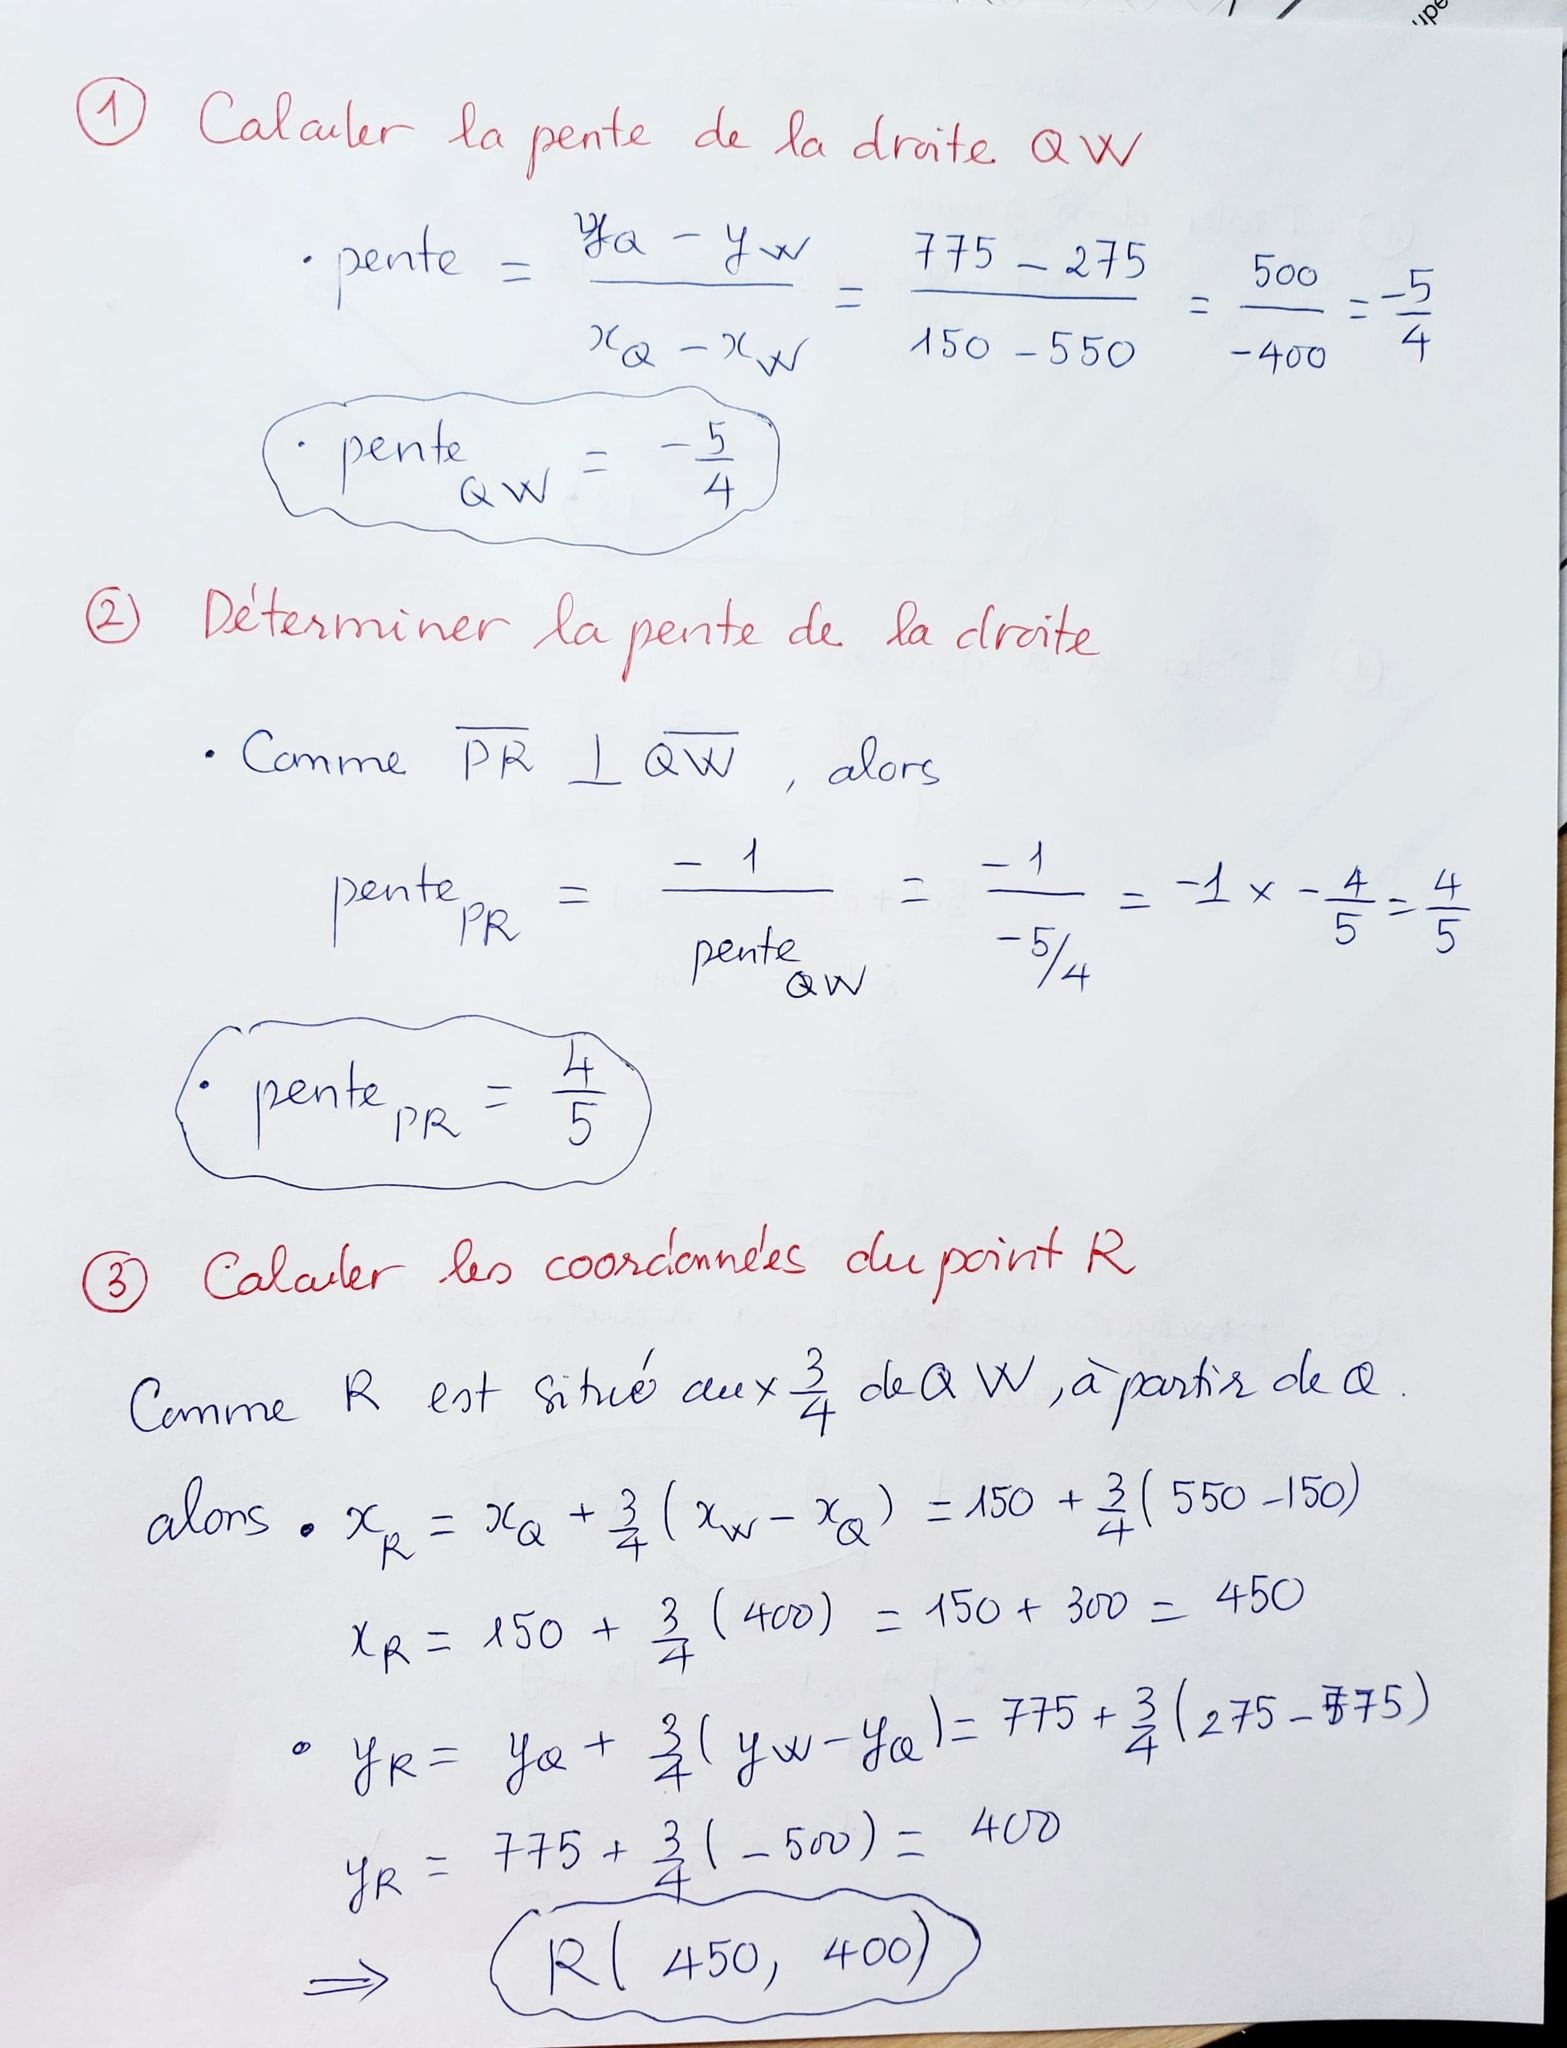 ① Calculer la pente de la droite QW
• pente = (y_Q - y_W)/(x_Q - x_W) = (775 - 275)/(150 - 550) = 500/-400 = -5/4
• pente_QW = -5/4
② Déterminer la pente de la droite
• Comme PR ⊥ QW, alors
pente_PR = -1/pente_QW = -1/(-5/4) = -1 × -4/5 = 4/5
• pente_PR = 4/5
③ Calculer les coordonnées du point R
Comme R est situé aux 3/4 de QW, à partir de Q.
alors • x_R = x_Q + 3/4 (x_W - x_Q) = 150 + 3/4 (550 - 150)
x_R = 150 + 3/4 (400) = 150 + 300 = 450
• y_R = y_Q + 3/4 (y_W - y_Q) = 775 + 3/4 (275 - 775)
y_R = 775 + 3/4 (-500) = 400
⇒ R(450, 400)